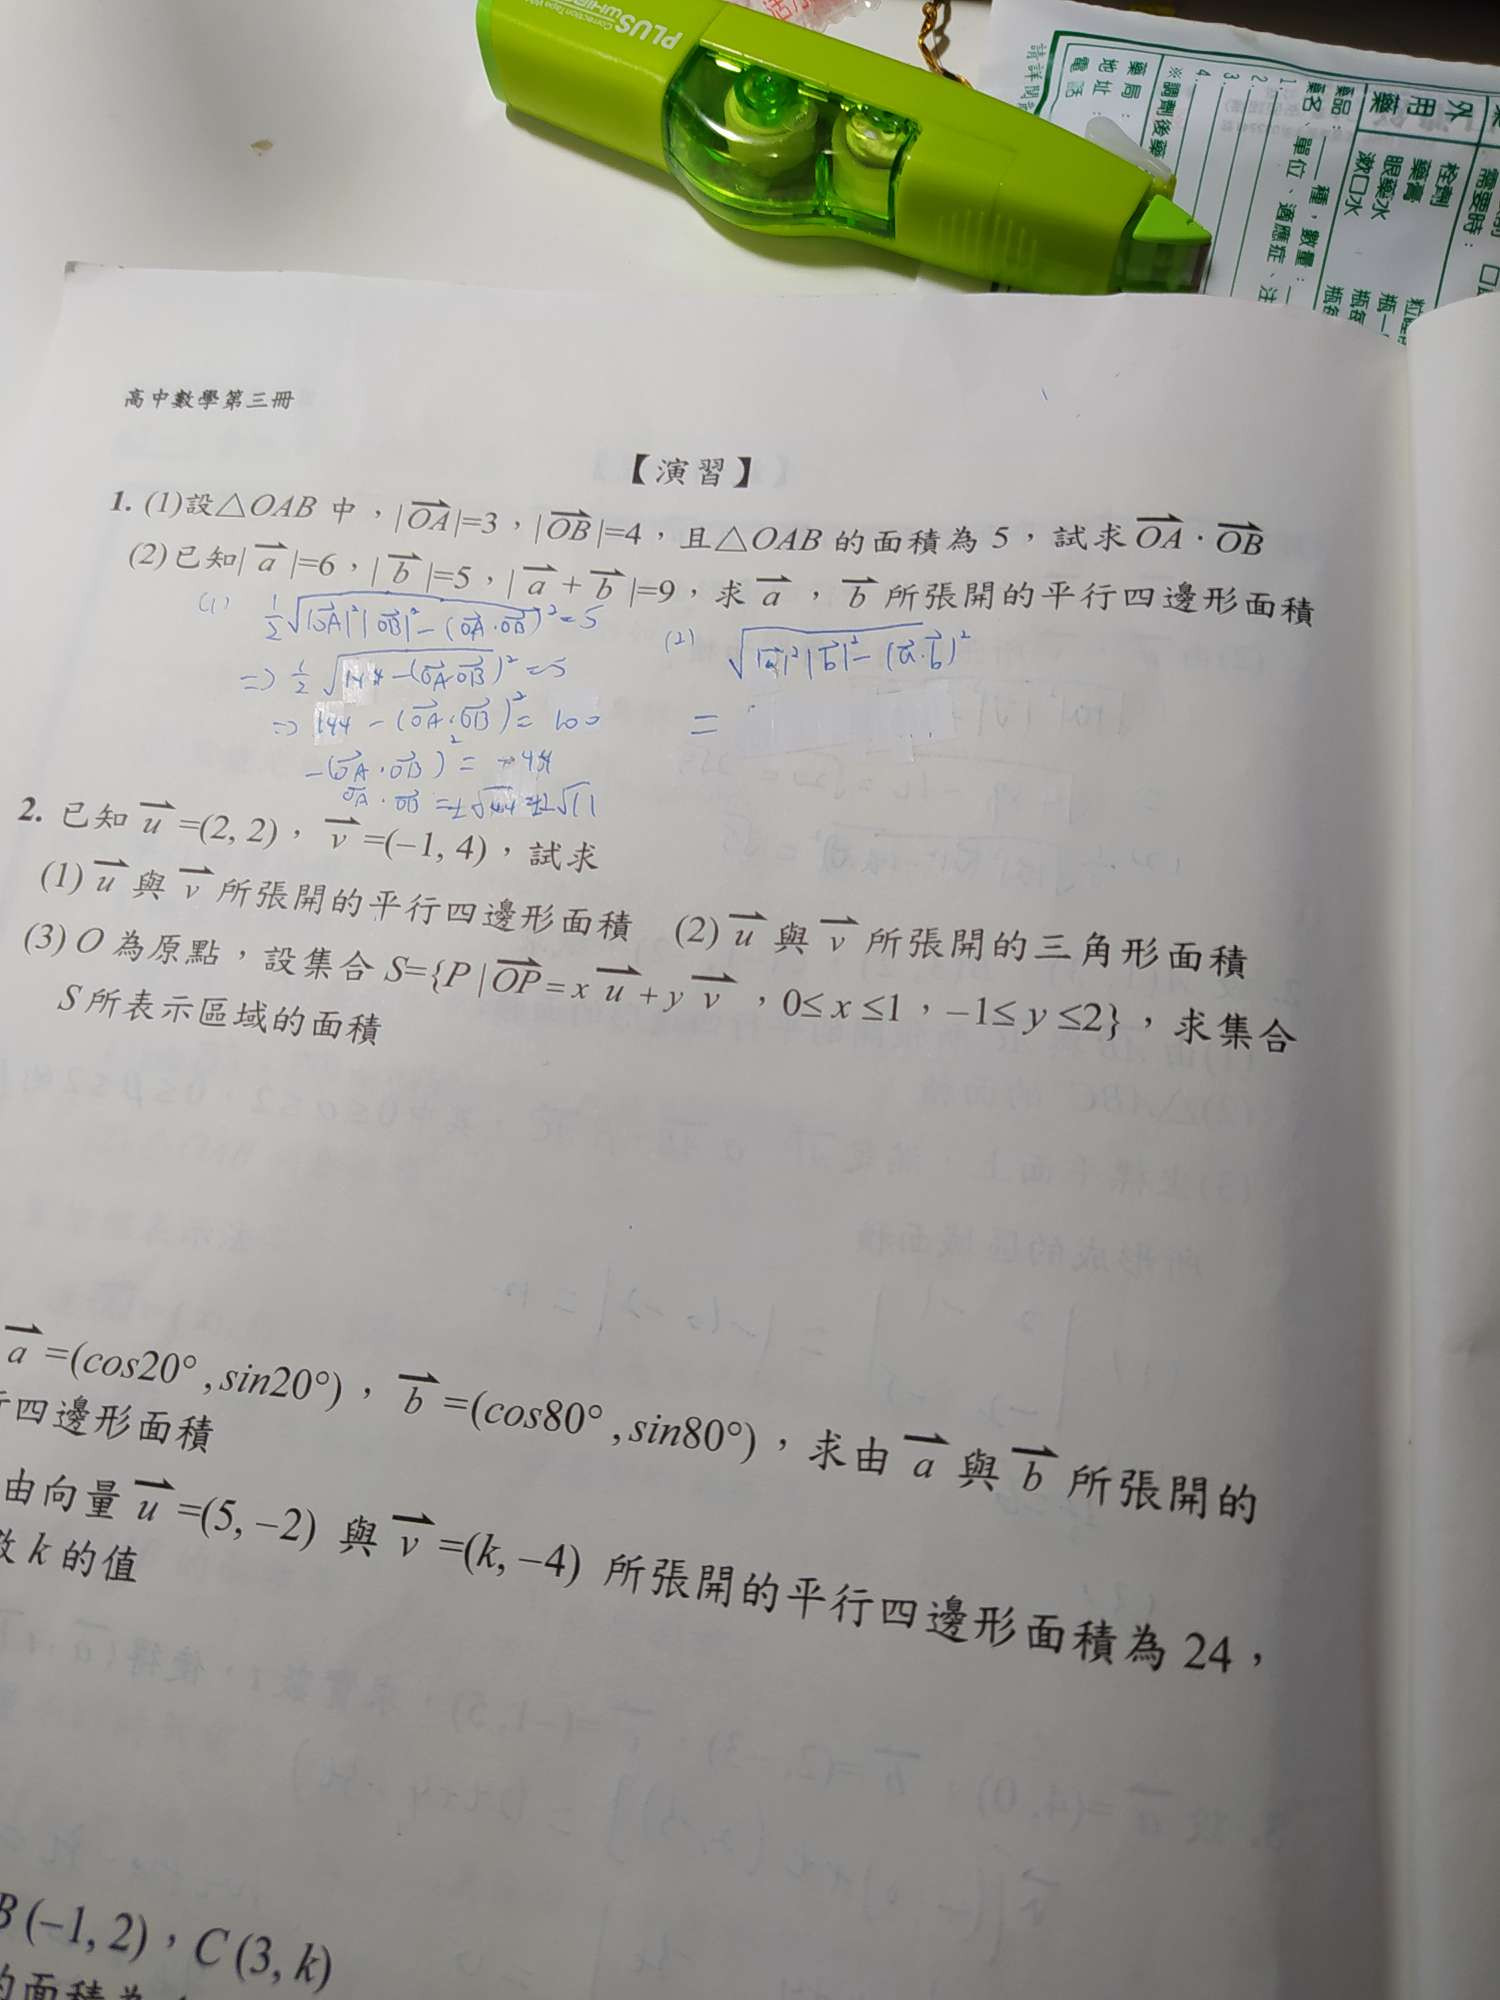 PLUS
Correction Tape
外用藥
栓劑
藥膏
眼藥水
漱口水
需要時：
藥局：
地址：
電話：
※調劑後藥
1.藥品名、單位、適應症、注
2.
3.
4.
一種，數量：
高中數學第三冊
【演習】
1. (1)設△OAB 中，|OA⃗|=3，|OB⃗|=4，且△OAB 的面積為 5，試求 OA⃗．OB⃗
(2)已知|a⃗|=6，|b⃗|=5，|a⃗+b⃗|=9，求 a⃗，b⃗ 所張開的平行四邊形面積
(1) ½√|OA⃗|²|OB⃗|²-(OA⃗·OB⃗)²=5
(2) √|a⃗|²|b⃗|²-(a⃗·b⃗)²
=> ½√144-(OA⃗·OB⃗)²=5
=> 144-(OA⃗·OB⃗)²=100
=
-(OA⃗·OB⃗)²=-44
OA⃗·OB⃗=±√44=±2√11
2. 已知 u⃗=(2, 2)，v⃗=(−1, 4)，試求
(1) u⃗ 與 v⃗ 所張開的平行四邊形面積 (2) u⃗ 與 v⃗ 所張開的三角形面積
(3) O 為原點，設集合 S={P | OP⃗ = x u⃗ + y v⃗，0≤ x ≤1，−1≤ y ≤2}，求集合
S 所表示區域的面積
a⃗=(cos20°, sin20°)，b⃗=(cos80°, sin80°)，求由 a⃗ 與 b⃗ 所張開的
行四邊形面積
由向量 u⃗=(5, −2) 與 v⃗=(k, −4) 所張開的平行四邊形面積為 24，
數 k 的值
B (−1, 2)，C (3, k)
的面積為